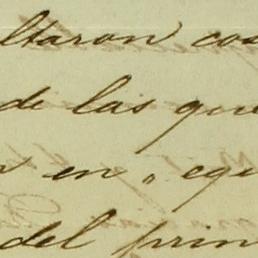 ltaron con
de las que
en „ equi
del prin